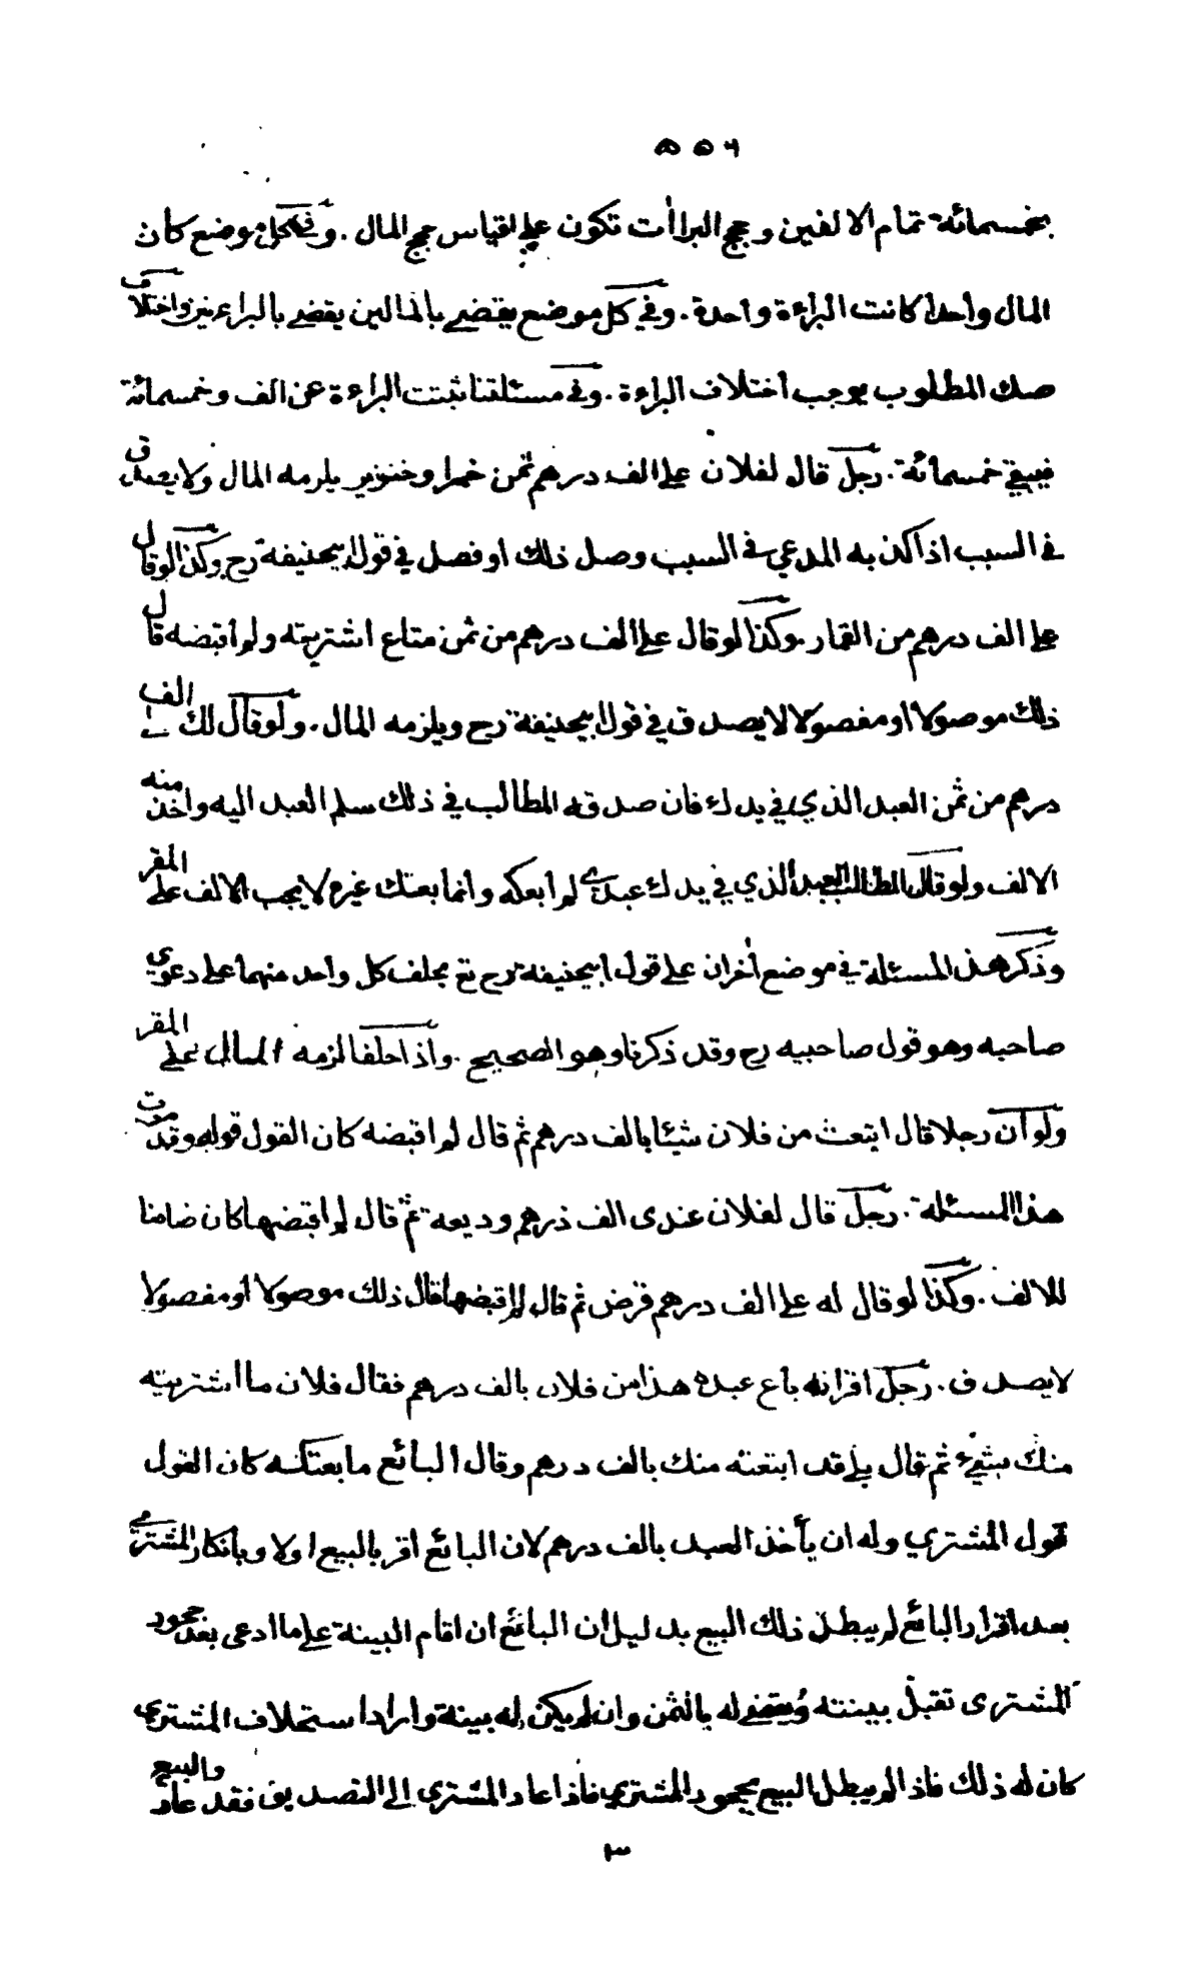 ٥٥٦
بخمسمائة تمام الالفين وحجج البراأت تكون على اقياس حجج المال . وفي كل موضع كان
المال واحدا كانت البراءة واحدة . وفي كل موضع يقضى بالمالين يقضى بالبراءتين واختلاف
صك المطلوب يوجب اختلاف البراءة . وفي مسئلتنا ثبتت البراءة عن الف وخمسمائة
فيبقى خمسمائة . رجل قال لفلان على الف درهم ثمن خمر او خنزير يلزمه المال ولا يصدق
في السبب اذا كذبه المدعي في السبب وصل ذلك او فصل في قول ابيحنيفة رح وكذا لو قال
على الف درهم من القمار وكذا لو قال على الف درهم من ثمن متاع اشتريته ولم اقبضه قال
ذلك موصولا او مفصولا لا يصدق في قول ابيحنيفة رح ويلزمه المال . ولو قال لك على الف
درهم من ثمن العبد الذي في يدك فان صدقه المطالب في ذلك سلم العبد اليه واخذ منه
الالف ولو قال الطالب العبد الذي في يدك عبدي لم ابعكه وانما بعتك غيره لا يجب الالف على المقر
وذكر هذه المسئلة في موضع أخر ان على قول ابيحنيفة رح تع يحلف كل واحد منهما على دعوى
صاحبه وهو قول صاحبيه رح وقد ذكرنا وهو الصحيح . واذا حلفا لزمه المال على المقر
ولو ان رجلا قال ابتعت من فلان شيئا بالف درهم ثم قال لم اقبضه كان القول قوله وقد مرت
هذا المسئلة . رجل قال لفلان عندى الف درهم وديعة ثم قال لم اقبضها كان ضامنا
للالف . وكذا لو قال له على الف درهم قرض ثم قال لم اقبضها قال ذلك موصولا او مفصولا
لا يصدق . رجل اقر انه باع عبده هذا من فلان بالف درهم فقال فلان ما اشتريته
منك بشيء ثم قال بلى قد ابتعته منك بالف درهم وقال البائع ما بعتكه كان القول
قول المشتري وله ان يأخذ العبد بالف درهم لان البائع اقر بالبيع اولا وبانكار المشترى
بعد اقرار البائع لم يبطل ذلك البيع بدليل ان البائع ان اقام البينة على ما ادعى بعد جحود
المشترى تقبل بيننته ويقضى له بالثمن وان لم يكن له بينة واراد استحلاف المشترى
كان له ذلك فاذا لم يبطل البيع بجحود المشتري فاذا عاد المشترى الى التصديق فقد عاد والبيع
٣